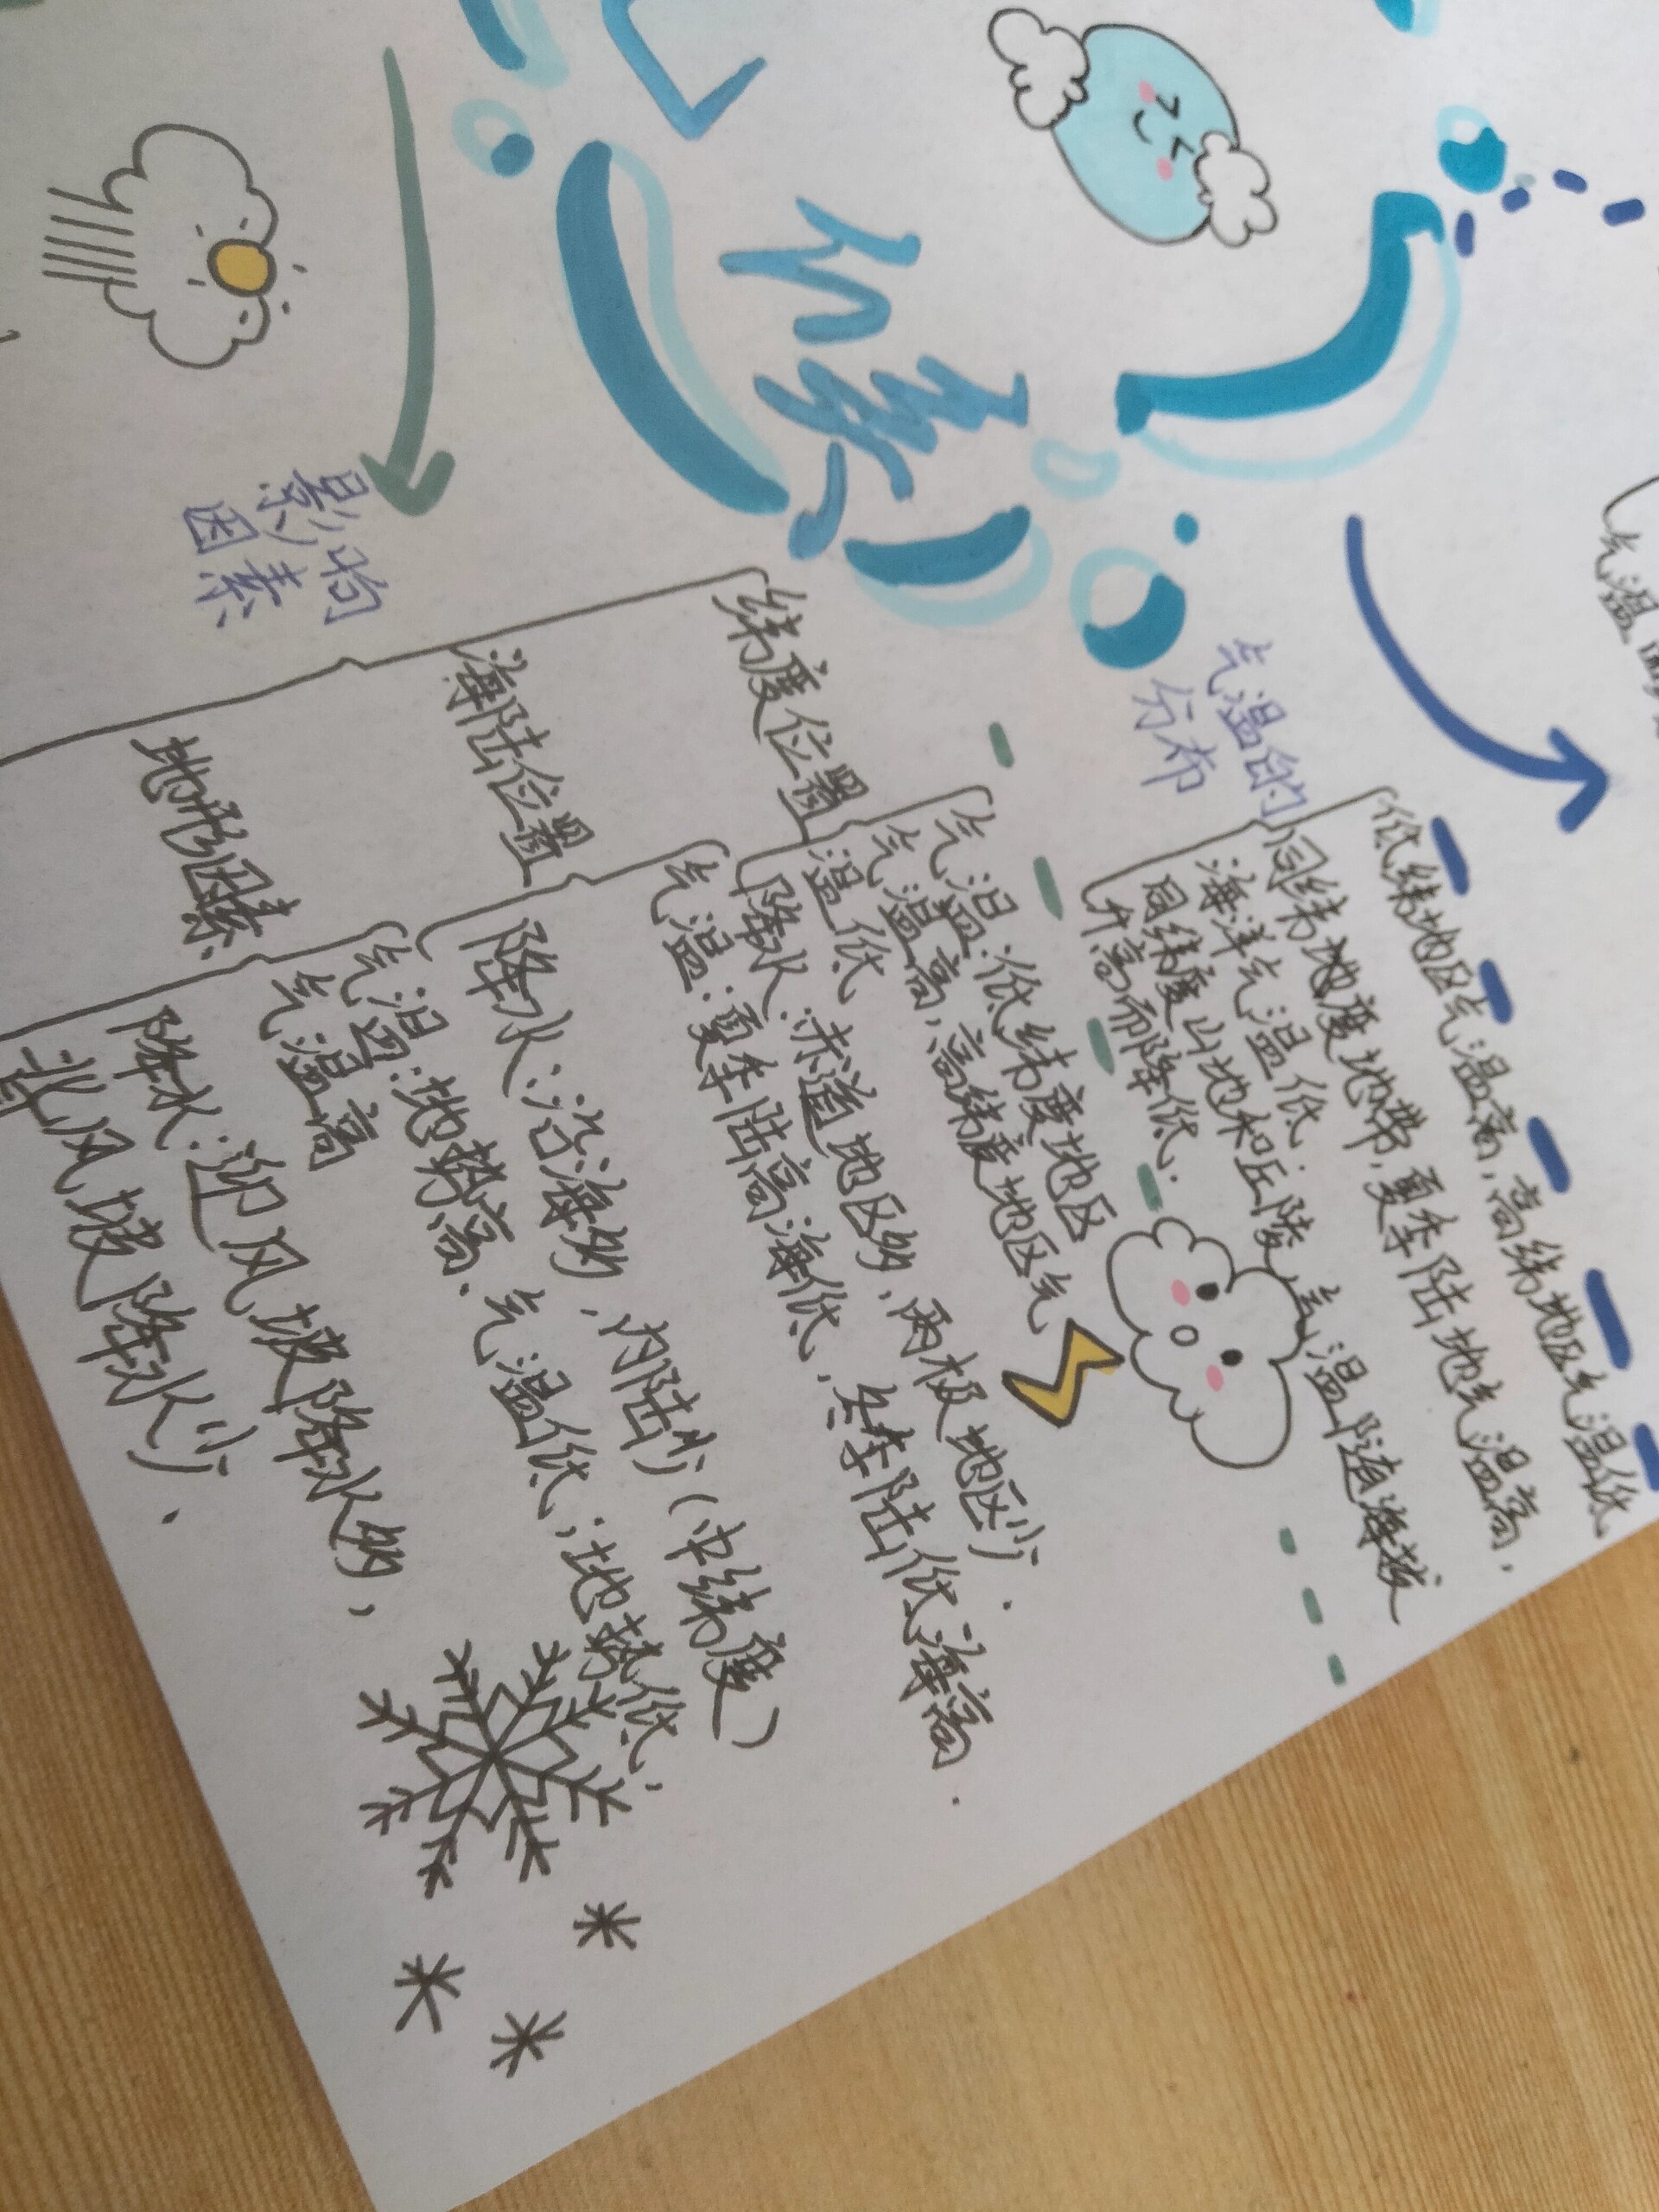 气温
气候
气温的
分布
低纬地区气温高,高纬地区气温低
同纬地度地带,夏季陆地气温高,
海洋气温低.
同纬度山地和丘陵,气温随海拔
升高而降低.
影响
因素
纬度位置
气温:低纬度地区
气温高,高纬度地区气
温低
降水:赤道地区多,两极地区少.
海陆位置
气温:夏季陆高海低,冬季陆低海高.
降水:沿海多,内陆少(中纬度)
地形因素
气温:地势高、气温低;地势低,
气温高
降水:迎风坡降水多,
背风坡降水少.